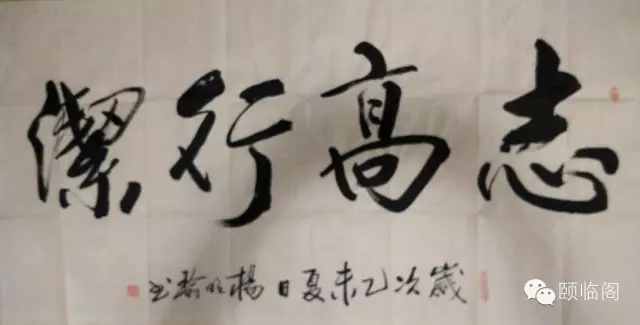 志高行潔
歲次乙未夏日 楊 书
颐临阁